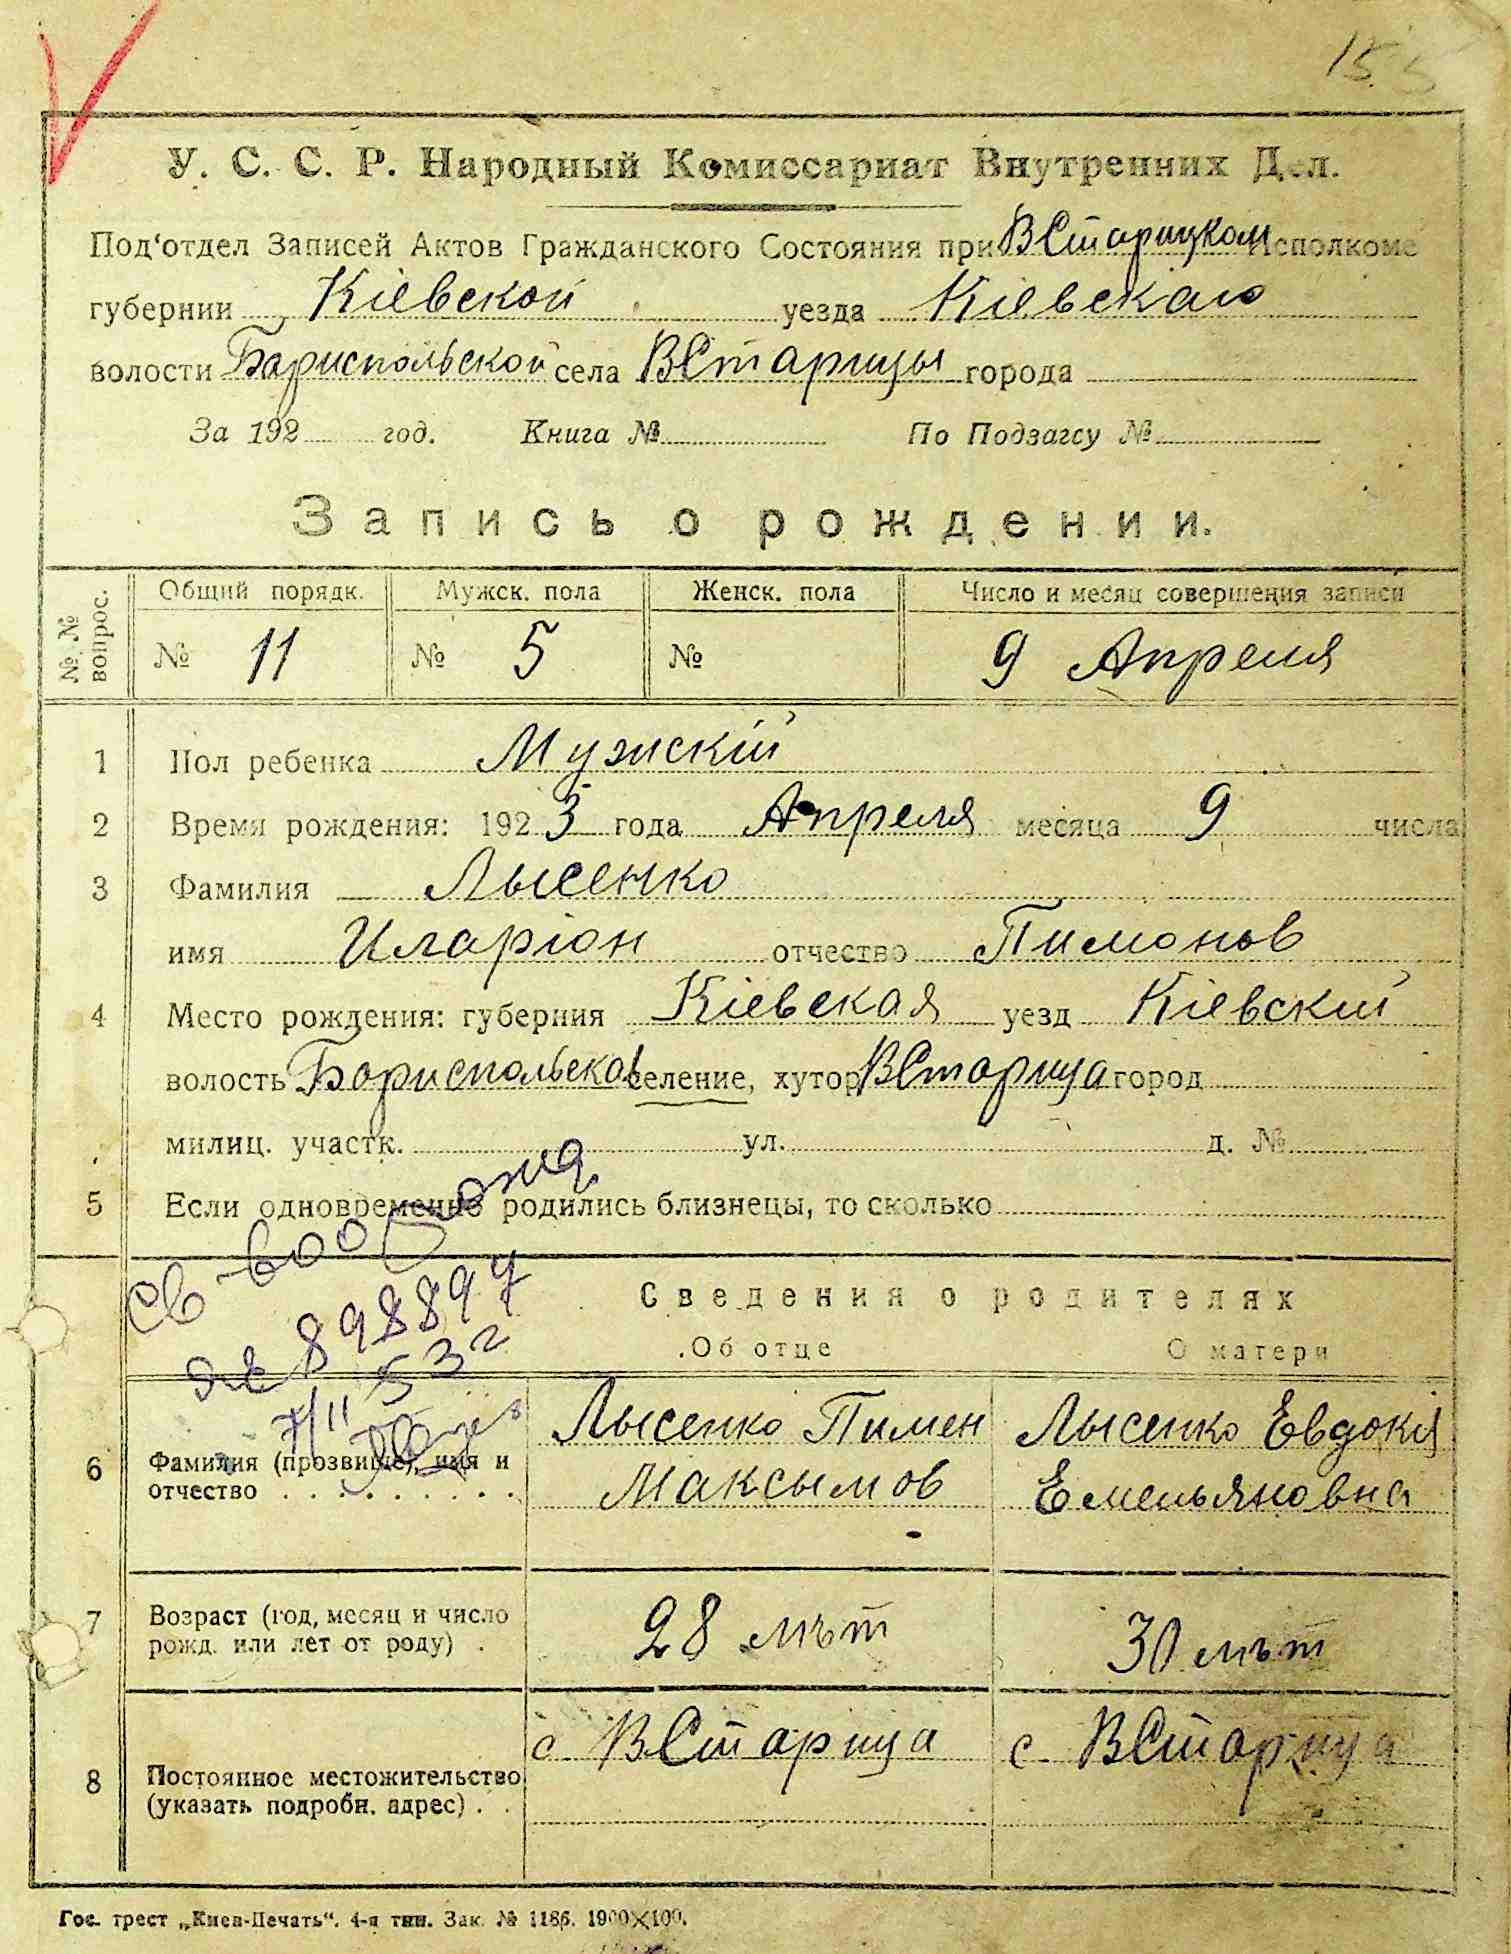 15
У. С. С. Р. Народный Комиссариат Внутренних Дел.
Под'отдел Записей Актов Гражданского Состояния при ВСтарицком Исполкоме
губернии Кіевской уезда Кіевскаго
волости Бориспольской села ВСтарицы города
За 192 год. Книга № По Подзагсу №
Запись о рождении.
№ № вопрос. Общий порядк. Мужск. пола Женск. пола Число и месяц совершения записи
№ 11 № 5 № 9 Апреля
1 Пол ребенка Мужскій
2 Время рождения: 1923 года Апреля месяца 9 числа
3 Фамилия Лысенко
имя Иларіон отчество Пимонов
4 Место рождения: губерния Кіевская уезд Кіевскій
волость Бориспольская селение, хутор ВСтарица город
милиц. участк. ул. д. №
5 Если одновременно родились близнецы, то сколько
Св-во
Сведения о родителях
№ 898897
Об отце О матери
7/II 53 г
6 Фамилия (прозвище), имя и отчество Лысенко Пимен Лысенко Евдокія
Максымов Емельяновна
7 Возраст (год, месяц и число рожд. или лет от роду) 28 лѣт 30 лѣт
8 Постоянное местожительство (указать подробн. адрес) с ВСтарица с ВСтарица
Гос. трест „Киев-Печать“. 4-я тип. Зак. № 1186. 1900×100.